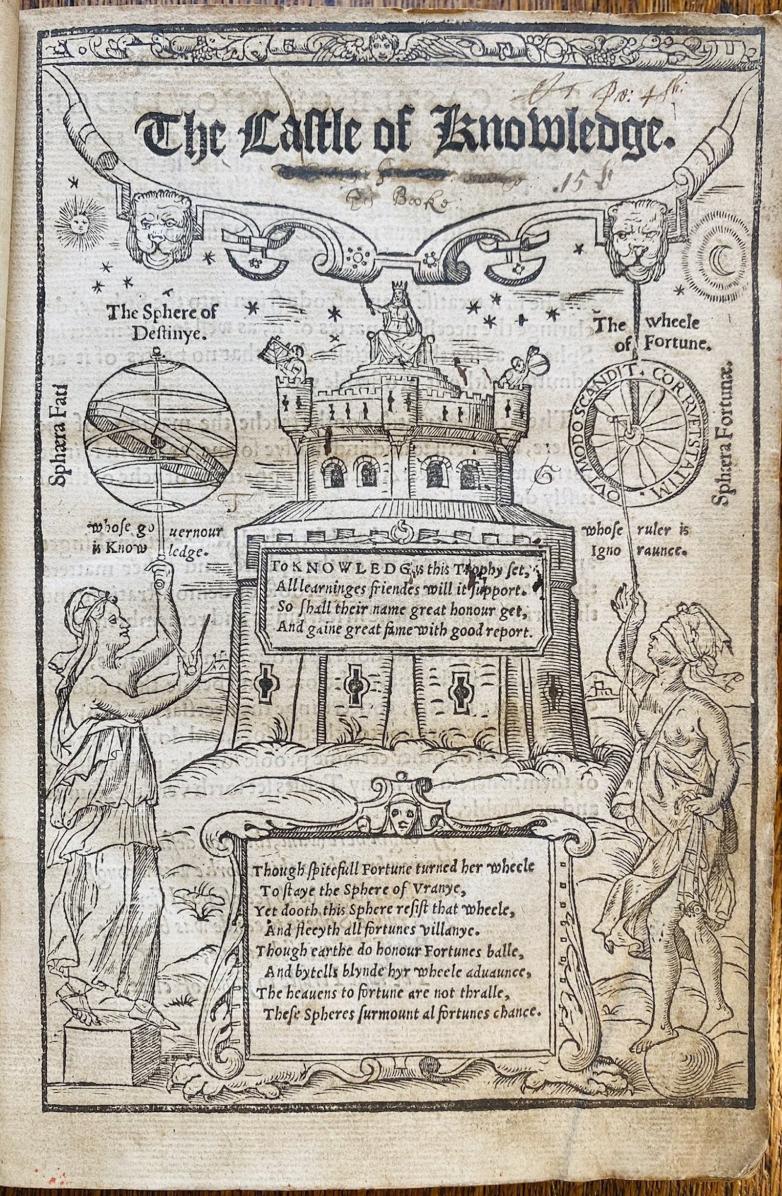 The Caſtle of Knowledge.
Booke
The Sphere of
Deſtinye.
Sphæra Fati
whoſe gouernour
is Knowledge.
The wheele
of Fortune.
QVI MODO SCANDIT. CORRVET STATIM.
Sphæra Fortunæ.
whoſe ruler is
Ignoraunce.
To KNOWLEDG is this Trophy ſet,
All learninges friendes will it ſupport.
So ſhall their name great honour get,
And gaine great fame with good report.
Though ſpitefull Fortune turned her wheele
To ſtaye the Sphere of Vranye,
Yet dooth this Sphere reſiſt that wheele,
And fleeyth all fortunes villanye.
Though earthe do honour Fortunes balle,
And bytells blynde hyr wheele aduaunce,
The heauens to fortune are not thralle,
Theſe Spheres ſurmount al fortunes chance.